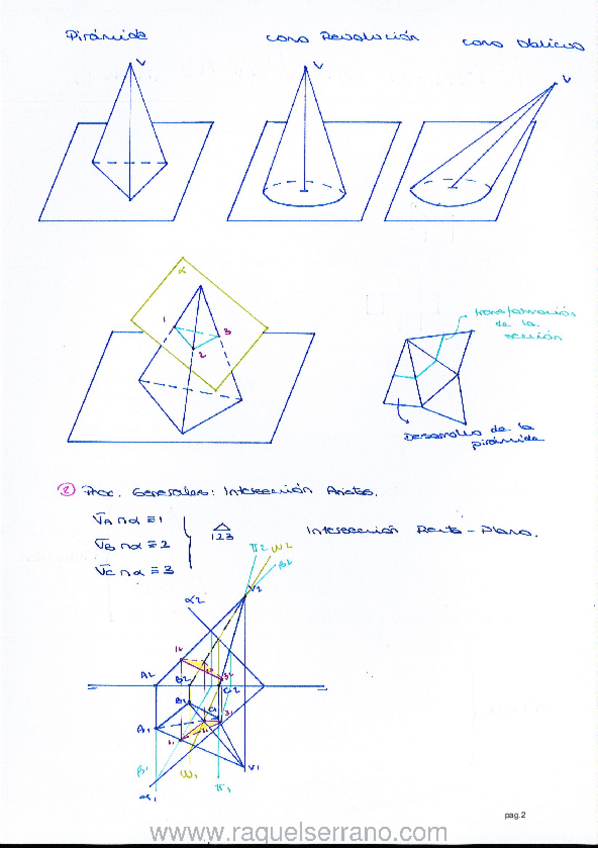 Pirámide
cono Revolución
cono oblicuo
V
V
V
α
1
2
3
transformación
de la
sección
Desarrollo de la
pirámide
② Proc. Generales: Intersección Aristas.
VA∩α≡1
VB∩α≡2
VC∩α≡3
123
Intersección Recta - Plano.
π2 ω2
β2
α2
V2
A2
B2
C2
B1
C1
A1
β1
ω1
π1
V1
α1
pag.2
www.raquelserrano.com